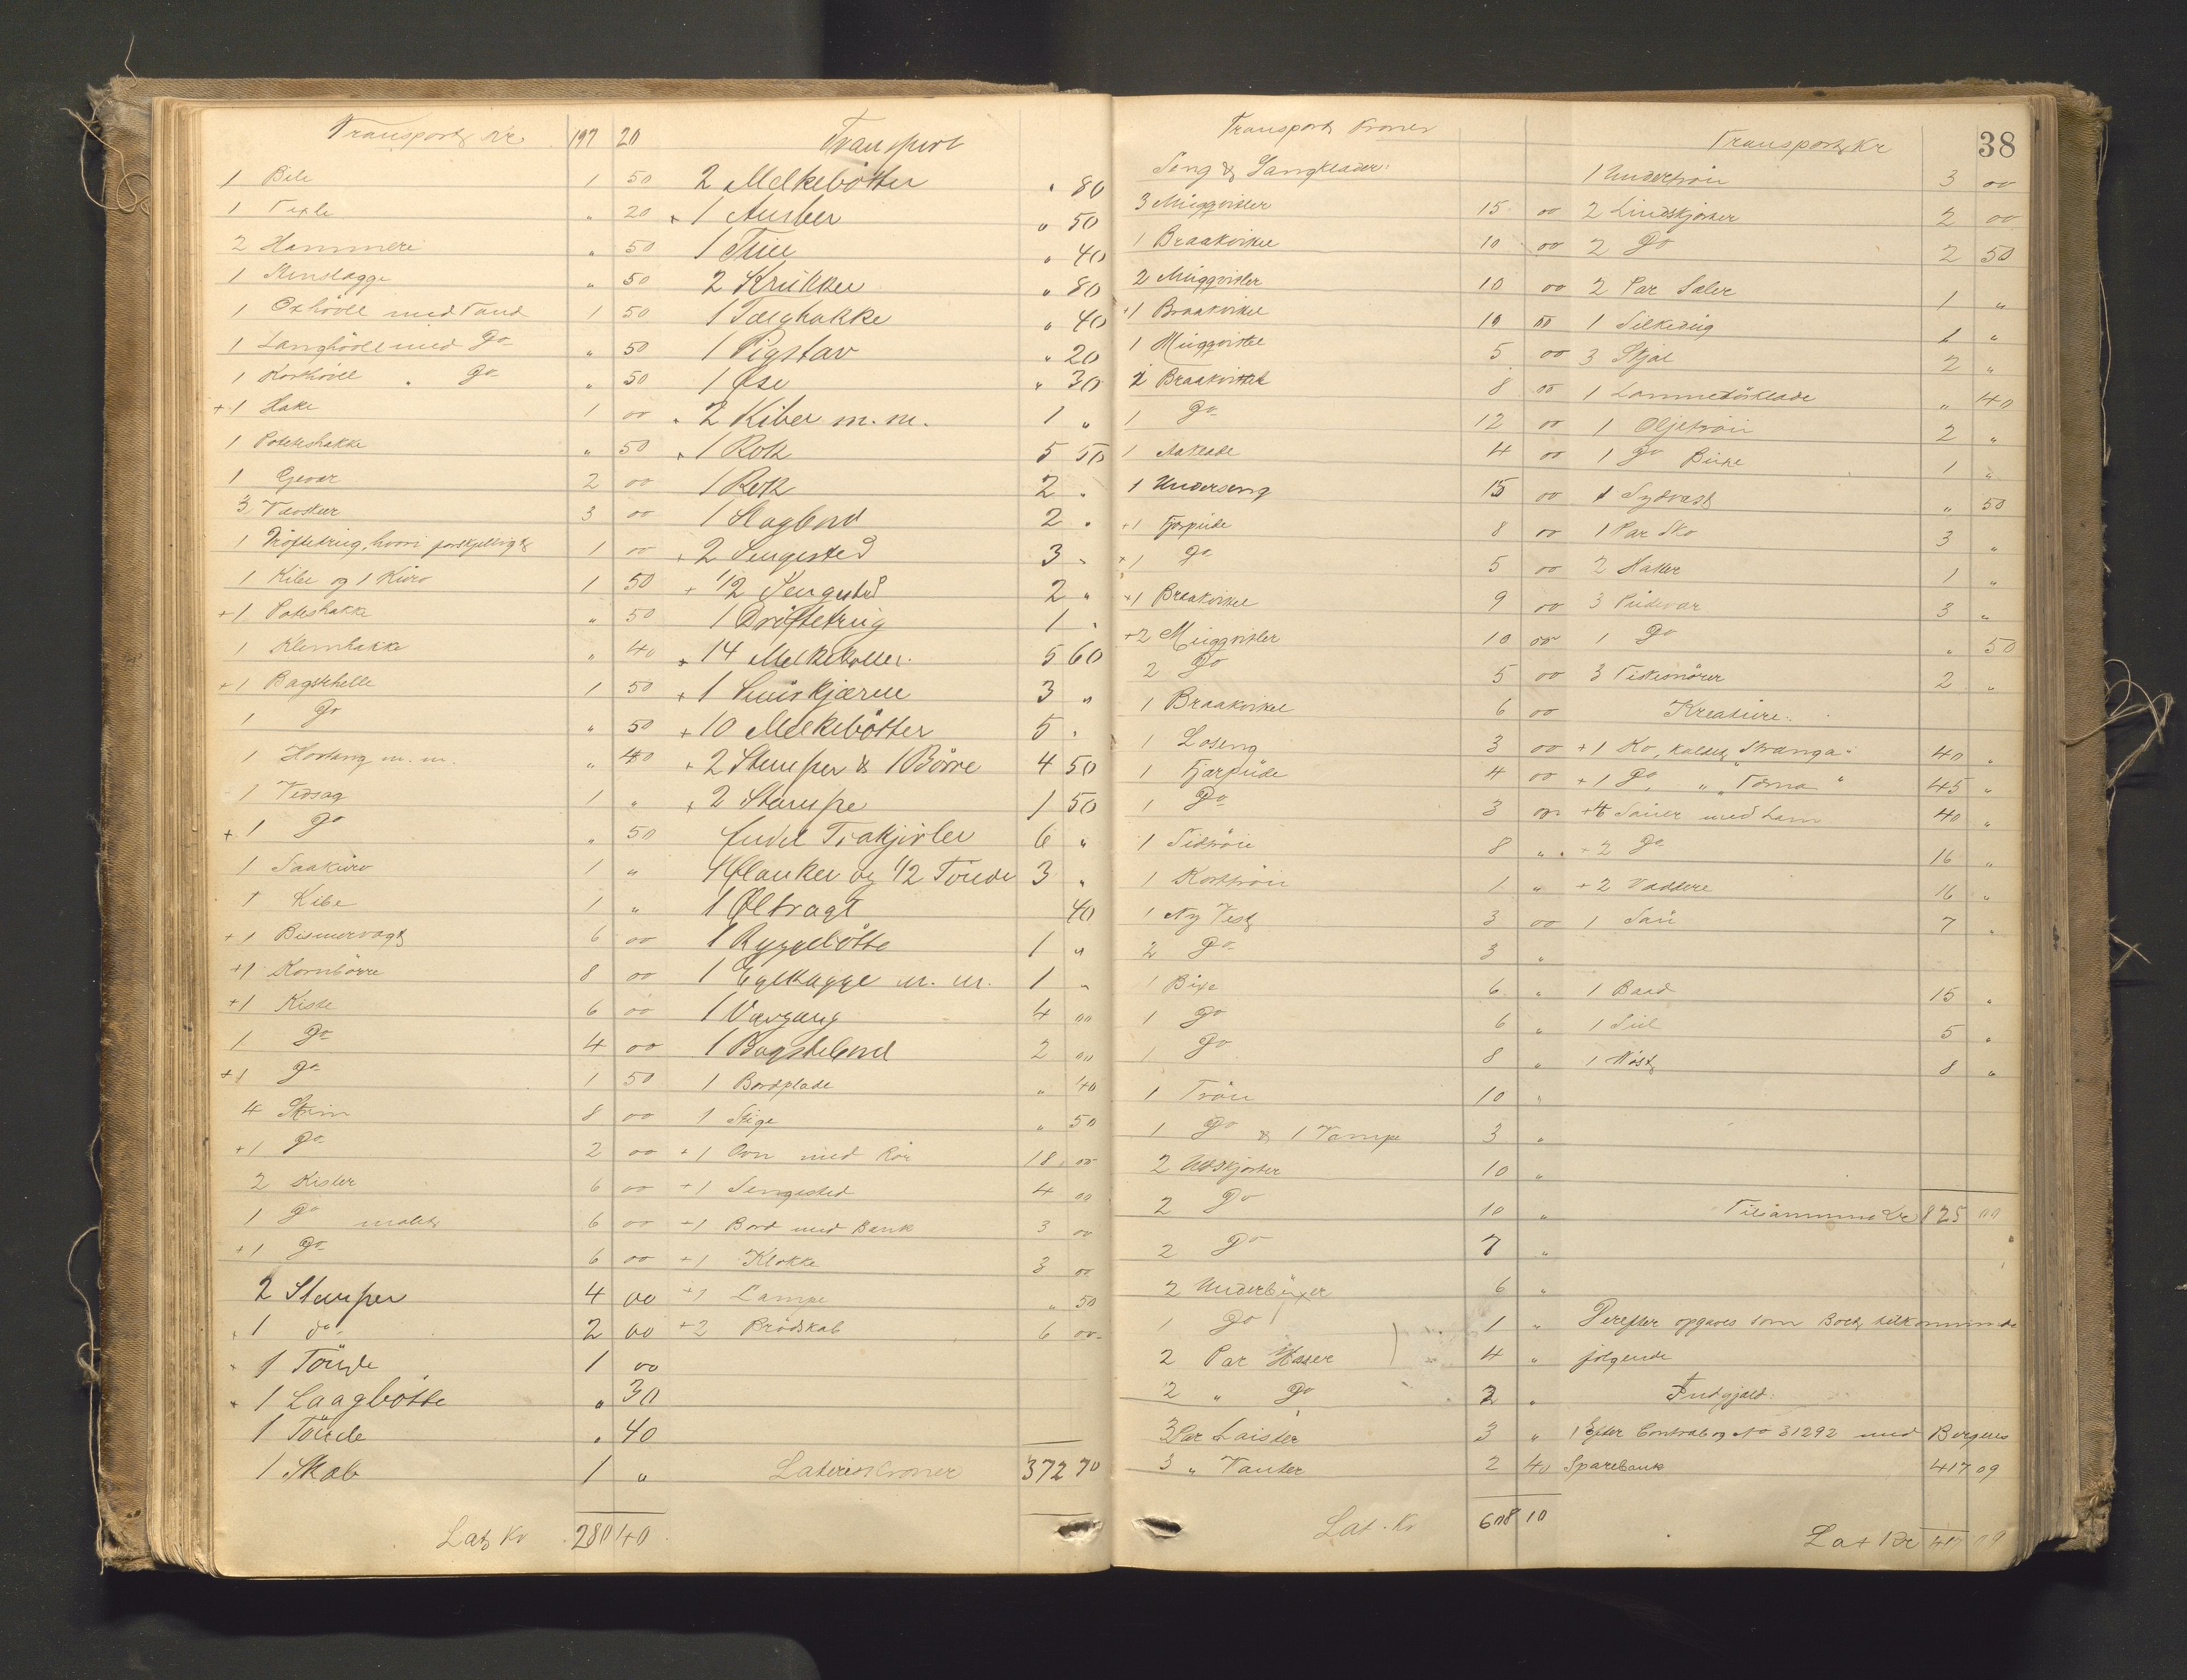 Transport Kr. 197 20
1 Bile 1 50
1 Texle " 20
2 Hammere " 50
1 " 50
1 Oxhövl med Tand 1 50
1 Langhövl med Do " 50
1 Korthövl " Do " 50
+1 Hake 1 00
1 Poteteshakke " 50
1 Gevær 2 00
3 3 00
1 Dröftetrug, hvori forskjelligt 1 00
1 Kibe og 1 Kurv 1 50
+1 Poteshakke " 50
1 Klemhakke " 40
+1 Bagstehelle 1 50
1 Do " 50
1 m. m. " 40
1 Vedsag 1 "
+1 Do " 50
1 Saakurv 1 "
1 Kibe 1 "
+1 Bismervægt 6 00
+1 Kornbörre 8 00
+1 Kiste 6 00
1 Do 4 00
+1 Do 1 50
4 Skrin 8 00
+1 Do 2 00
2 Kister 6 00
1 Do malet 6 00
+1 Do 6 00
2 Stamper 4 00
1 do 2 00
1 Tönde 1 00
1 Laagbötte " 30
1 Tönde " 40
1 Skab 1 "
Lat. Kr. 280 40
Transport
2 Melkebötter " 80
+ 1 Anker " 50
1 " 40
2 Krukker " 80
1 Tælghakke " 40
1 Pigstav " 20
1 Øse " 30
2 Kiber m. m. 1 "
+ 1 Rok 5 50
1 Rok 2 "
1 Slagbord 2 "
+ 2 Sengested 3 "
+ 1/2 Sengested 2 "
1 Dröftetrug 1 "
+ 14 Melkekoller 5 60
+ 1 Smörkjærne 3 "
+ 10 Melkebötter 5 "
+ 2 Stamper & 1 Börre 4 50
+ 2 Stampe 1 50
Endel Trækjörler 6 "
4 Planker og 1/2 Tönde 3 "
1 Øltragt 40
1 Ryggebötte 1 "
1 m. m. 1 "
1 Vævgang 4 00
1 Bagstebord 2 00
1 Bordplade " 40
1 Stige " 50
+1 Ovn med Rör 18 00
+1 Sengested 4 00
+1 Bord med Bænk 3 00
+1 Klokke 3 00
+1 Lampe " 50
+2 Brödskab 6 00
Lateris Kroner 372 70
Transport Kroner
Seng & Gangklæder:
3 Muggvitler 15 00
1 Braakvitel 10 00
2 Muggvitler 10 00
+1 Braakvitel 10 00
1 Muggvitel 5 00
1 Braakvitel 8 00
1 Do 12 00
1 Aaklæde 4 00
1 Underseng 15 00
+1 Fjærpude 8 00
+1 Do 5 00
+1 Braakvitel 9 00
+2 Muggvitler 10 00
2 Do 5 00
1 Braakvitel 6 00
1 Loseng 3 00
1 Fjærpude 4 00
1 Do 3 00
1 Sidtröie 8 "
1 Korttröie 1 "
1 Ny Vest 3 00
2 Do 3 "
1 Buxe 6 "
1 Do 6 "
1 Do 8 "
1 Tröie 10 "
1 Do & 1 Vampe 3 "
2 Uldskjorter 10 "
2 Do 10 "
2 Do 7 "
2 Underbuxer 6 "
1 Do 1 "
2 Par Hoser 4 "
2 " Do 2 "
3 Par Laister 3 "
3 " Vanter 2 40
Lat. Kr 608 10
Transport Kr 38
1 Undertröie 3 00
2 Lindskjorter 2 00
2 Do 2 50
2 Par Saler 1 "
1 Silkedug 1 "
3 Skjæl 2 "
1 Lommetörklæde " 40
1 Oljetröie 2 "
1 Do Buxe 1 "
1 Sydvest " 50
1 Par Sko 3 "
2 Hatter 1 "
3 Pudevar 3 "
1 Do " 50
3 Fiskesnörer 2 "
Kreature:
+1 Ko, kaldet "Stranga" 40 "
+1 Do, " "Torna" 45 "
+4 Sauer med Lam 40 "
+2 Do 16 "
+2 Væddere 16 "
1 Sau 7 "
1 Baad 15 "
1 Seil 5 "
1 Nöst 8 "
Tilsammen Kr 825 00
Derefter opgaves som Boet tilkommende
følgende
Indgjæld:
1 Efter Contrabog No 31292 med Bergens
Sparebank 417 09
Lat Kr 417 09